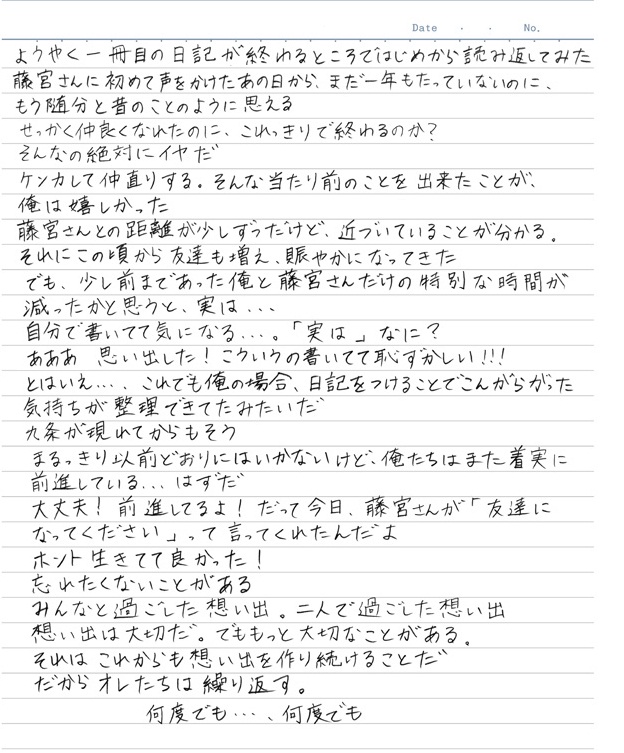 Date ・ ・ No.
ようやく一冊目の日記が終わるところではじめから読み返してみた
藤宮さんに初めて声をかけたあの日から、まだ一年もたっていないのに、
もう随分と昔のことのように思える
せっかく仲良くなれたのに、これっきりで終わるのか?
そんなの絶対にイヤだ
ケンカして仲直りする。そんな当たり前のことを出来たことが、
俺は嬉しかった
藤宮さんとの距離が少しずつだけど、近づいていることが分かる。
それにこの頃から友達も増え、賑やかになってきた
でも、少し前まであった俺と藤宮さんだけの特別な時間が
減ったかと思うと、実は・・・
自分で書いてて気になる・・・。「実は」なに?
あああ 思い出した!こういうの書いてて恥ずかしい!!!
とはいえ・・・、これでも俺の場合、日記をつけることでこんがらがった
気持ちが整理できてたみたいだ
九条が現れてからもそう
まるっきり以前どおりにはいかないけど、俺たちはまた着実に
前進している・・・はずだ
大丈夫!前進してるよ!だって今日、藤宮さんが「友達に
なってください」って言ってくれたんだよ
ホント生きてて良かった!
忘れたくないことがある
みんなと過ごした想い出。二人で過ごした想い出
想い出は大切だ。でももっと大切なことがある。
それはこれからも想い出を作り続けることだ
だからオレたちは繰り返す。
何度でも・・・、何度でも